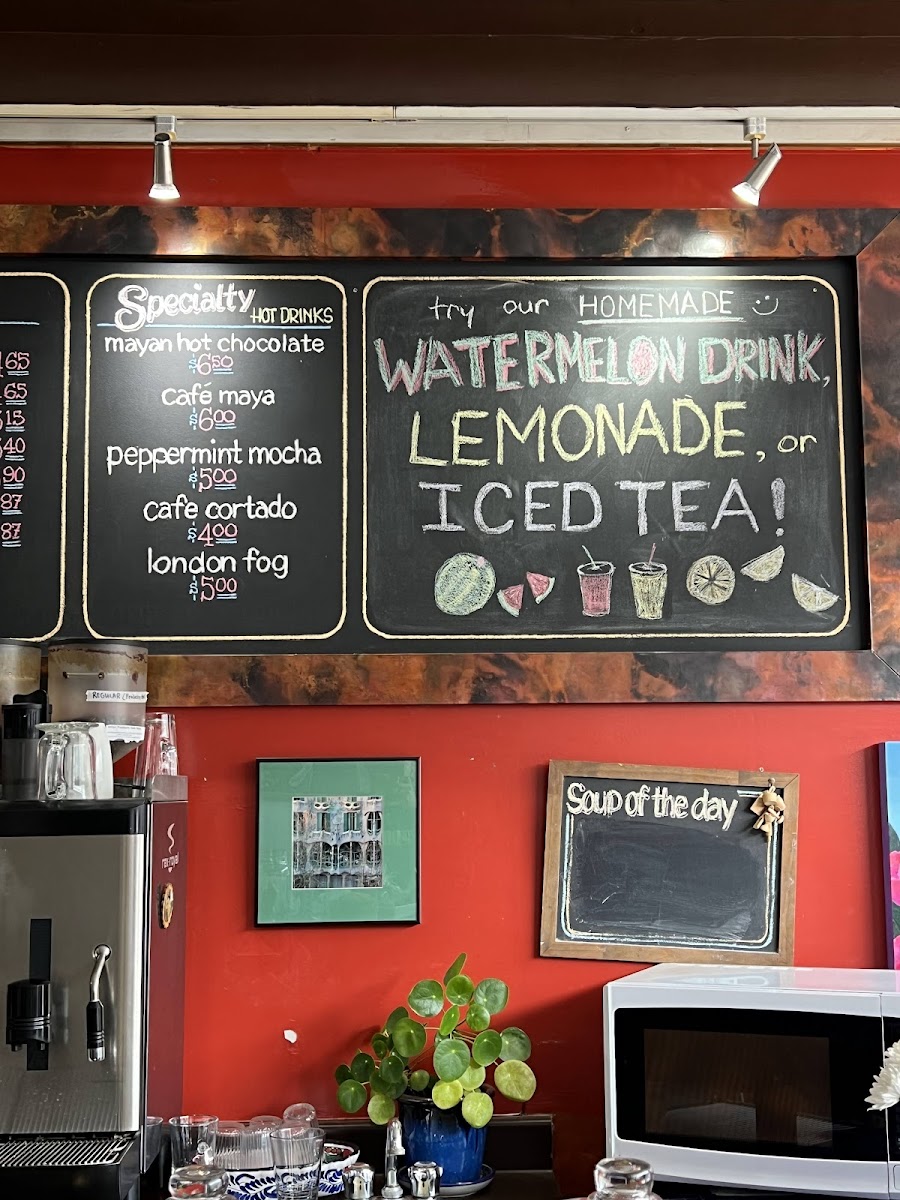 65
65
15
40
.90
87
87
Specialty
HOT DRINKS
mayan hot chocolate
$650
café maya
$600
peppermint mocha
$500
cafe cortado
$400
london fog
$500
try our HOMEMADE
WATERMELON DRINK,
LEMONADE, or
ICED TEA!
REGULAR
rex-royal
Soup of the day